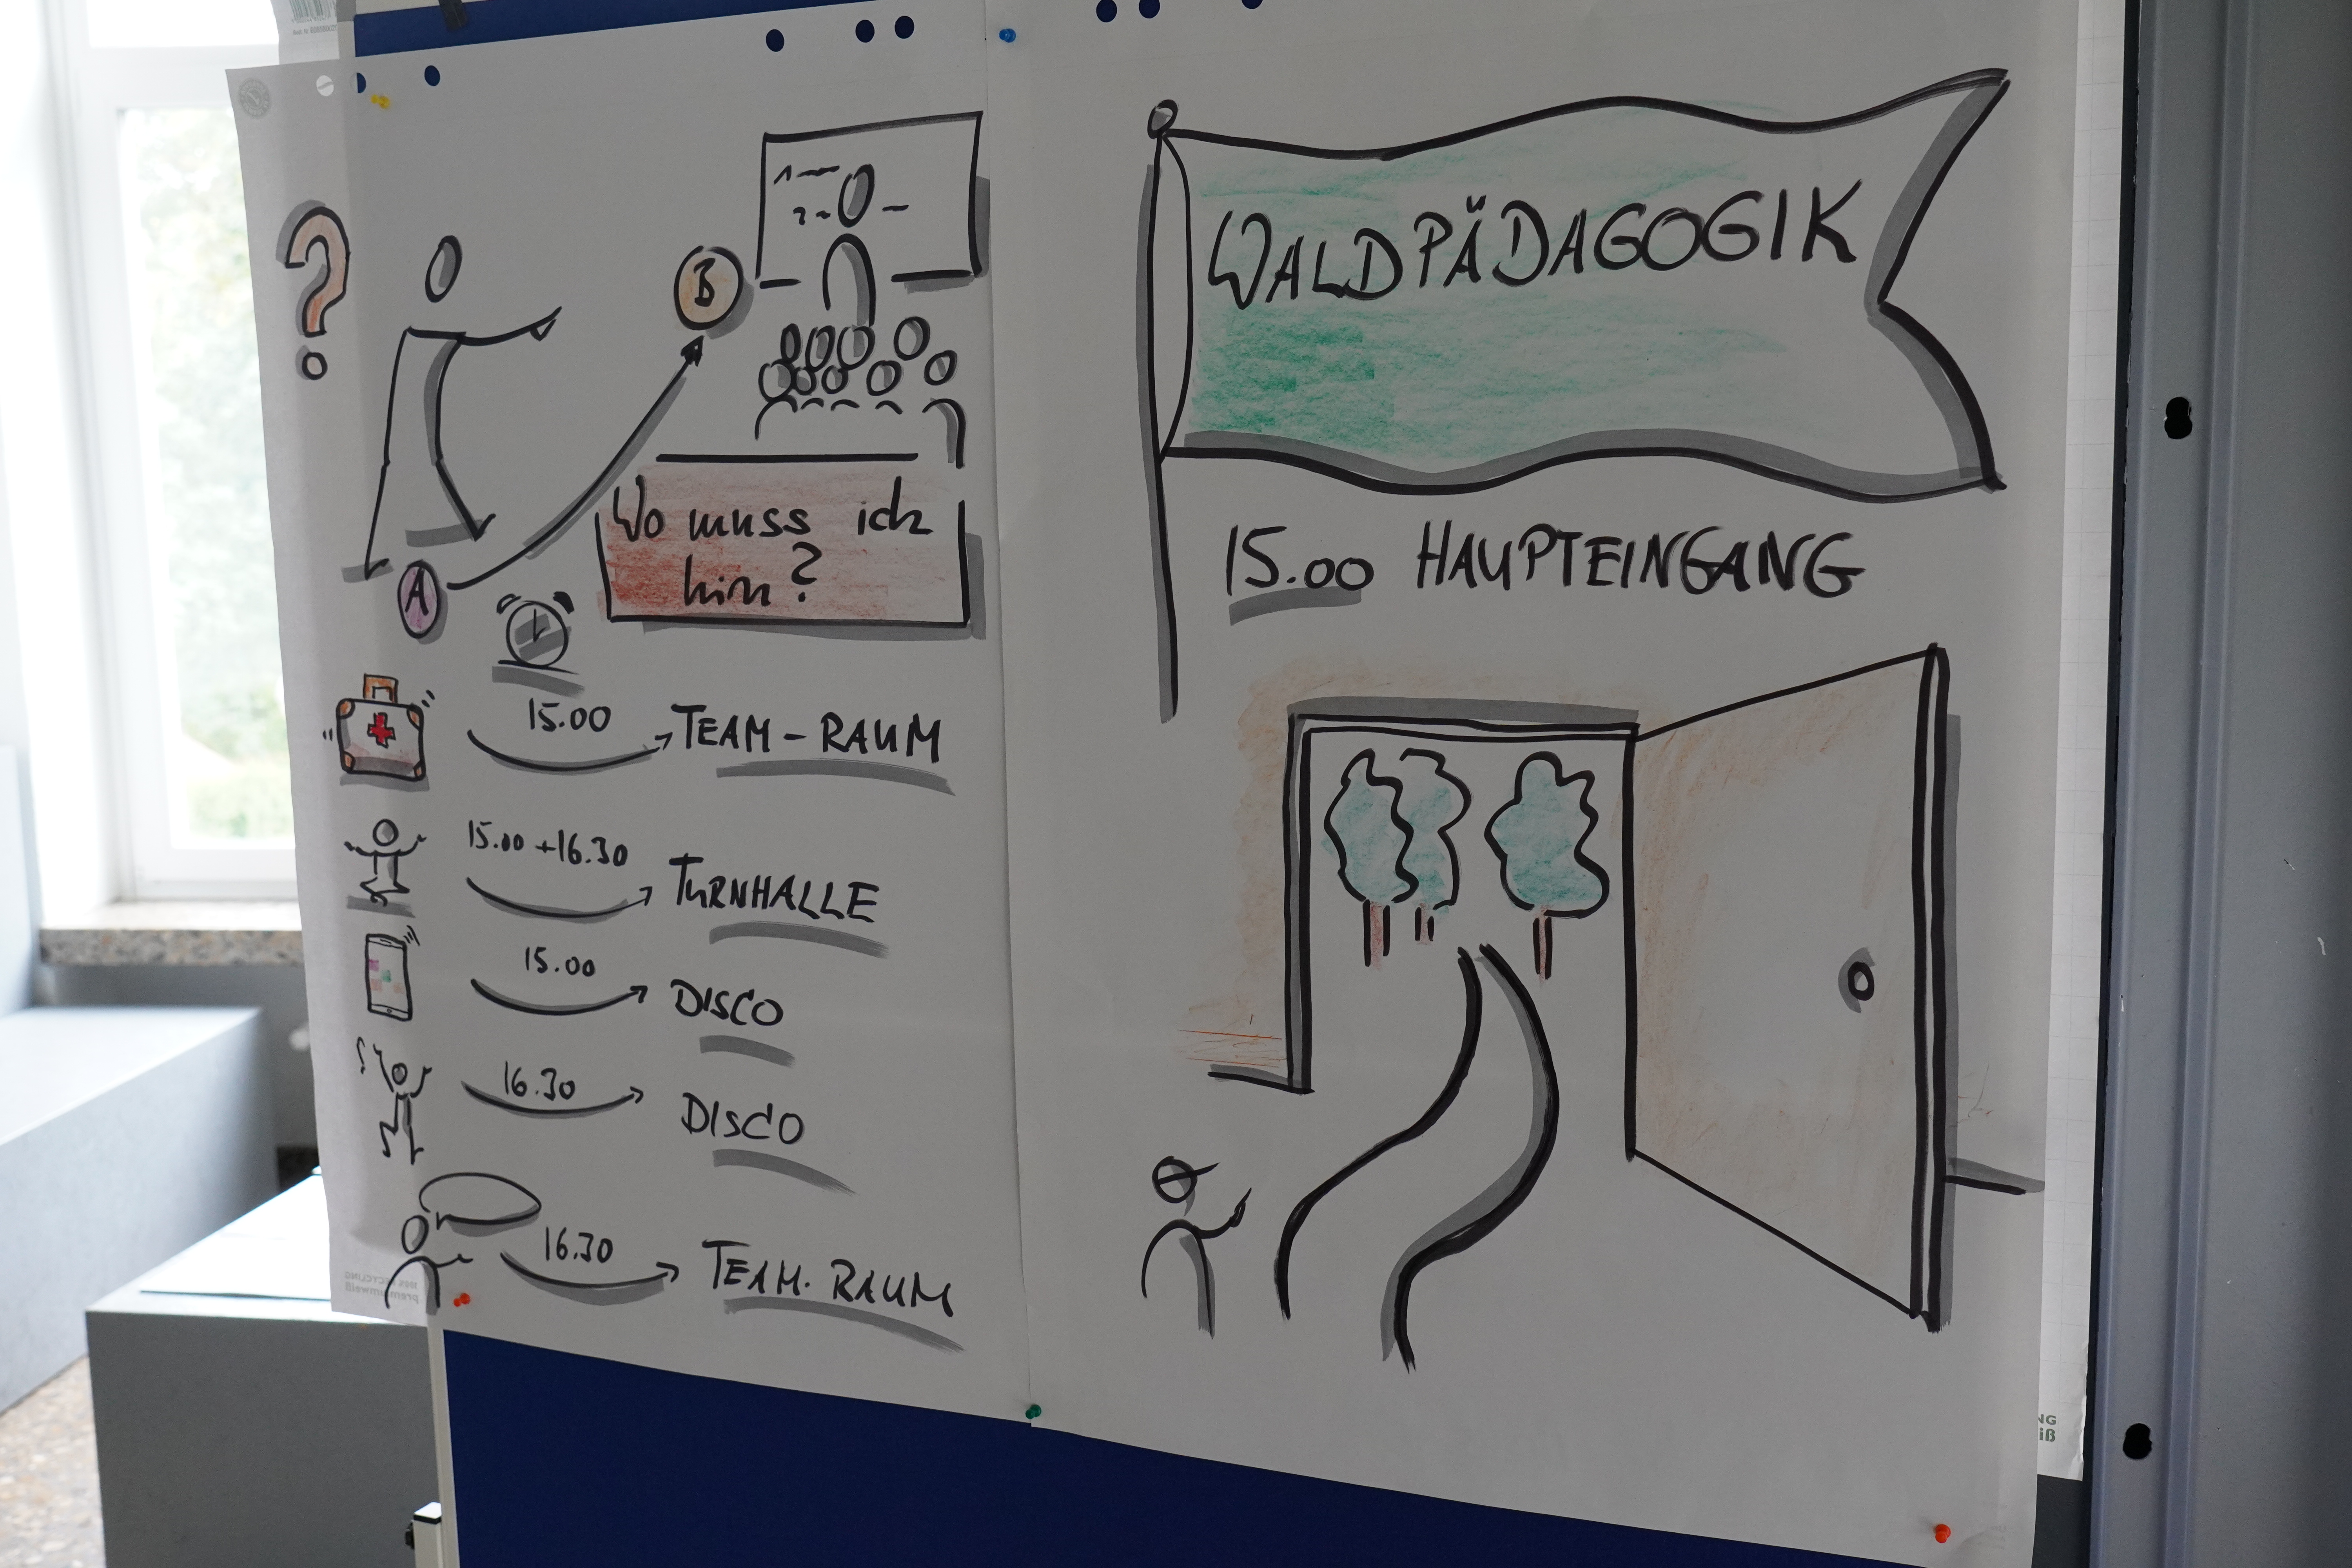 1
2
B
Wo muss ich
hin?
A
15.00
TEAM - RAUM
15.00 + 16.30
TURNHALLE
15.00
DISCO
16.30
DISCO
16.30
TEAM. RAUM
premiumweiß
WALDPÄDAGOGIK
15.00 HAUPTEINGANG
NG
iß